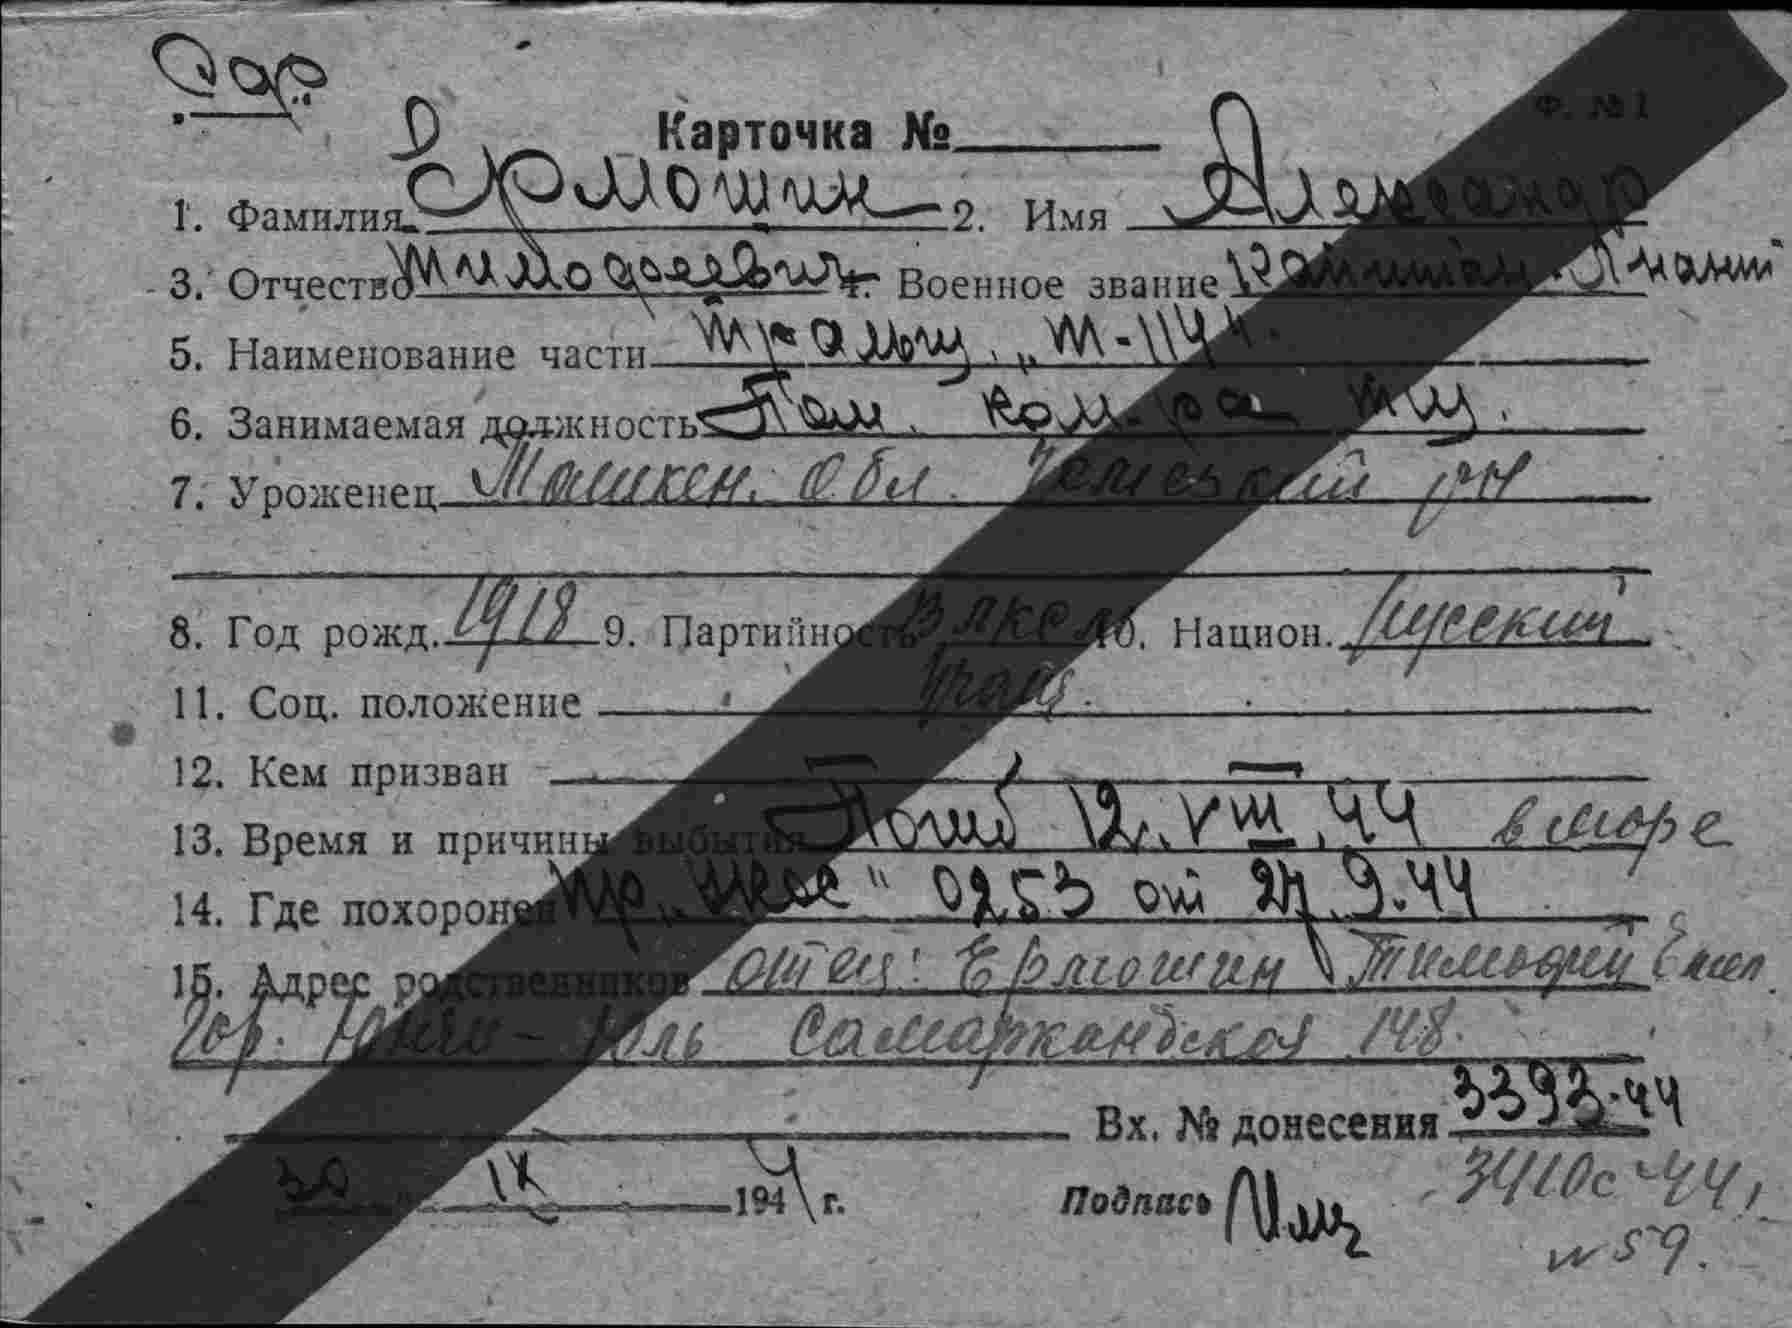 Ф. № 1
Карточка №
1. Фамилия Ермошин 2. Имя Александр
3. Отчество Тимофеевич 4. Военное звание Капитан-л-нант
5. Наименование части тральщ. „Т-114"
6. Занимаемая должность Пом. ком-ра тщ.
7. Уроженец Ташкен. обл. р-н
8. Год рожд. 1918 9. Партийность ВЛКСМ 10. Национ. русский
11. Соц. положение
12. Кем призван
13. Время и причины выбытия Погиб 12.VIII.44 в море
14. Где похоронен пр. 0253 от 27.9.44
15. Адрес родственников отец: Ермошин Тимофей Емел
гор. Янги-Юль Самаркандская 148.
Вх. № донесения 3393-44
30 IX 1944 г. Подпись 3410с-44г.
59.